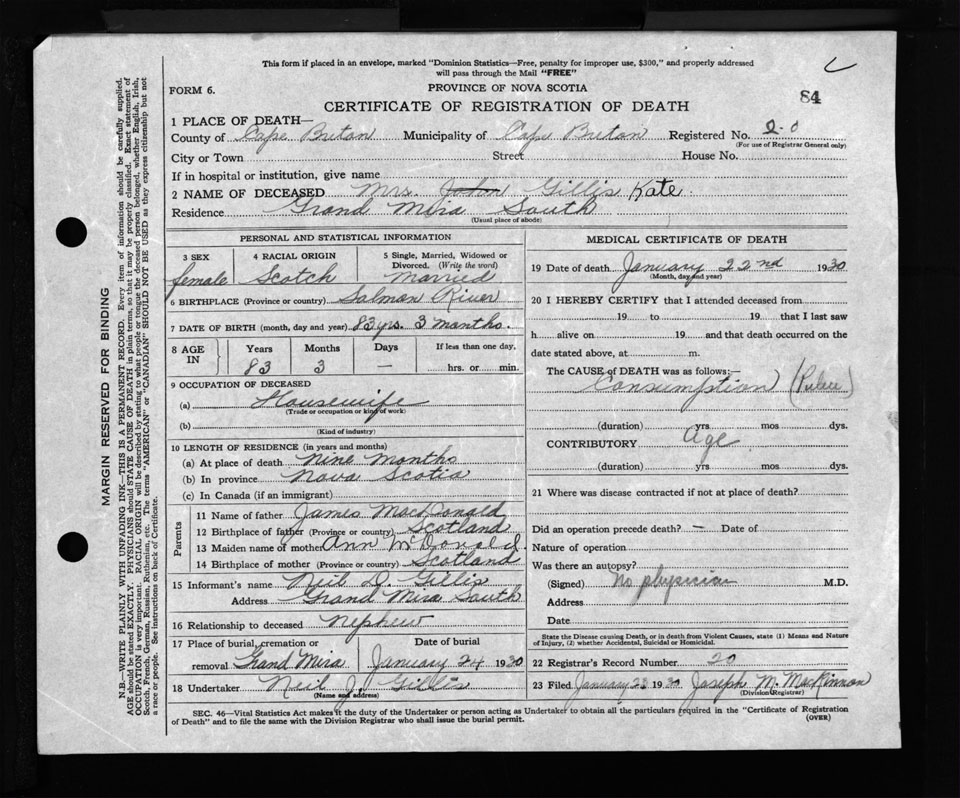 This form if placed in an envelope, marked "Dominion Statistics—Free, penalty for improper use, $300," and properly addressed
will pass through the Mail "FREE"
FORM 6.
PROVINCE OF NOVA SCOTIA
84
CERTIFICATE OF REGISTRATION OF DEATH
1 PLACE OF DEATH—
County of Cape Breton Municipality of Cape Breton Registered No.
(For use of Registrar General only)
City or Town Street House No.
If in hospital or institution, give name
2 NAME OF DECEASED Mrs. John Gillis Kate
Residence Grand Mira South
(Usual place of abode)
PERSONAL AND STATISTICAL INFORMATION
3 SEX female
4 RACIAL ORIGIN Scotch
5 Single, Married, Widowed or Divorced. (Write the word) Married
6 BIRTHPLACE (Province or country) Salmon River
7 DATE OF BIRTH (month, day and year) 83 yrs. 3 months.
8 AGE IN Years Months Days If less than one day,
83 3 — hrs. or min.
9 OCCUPATION OF DECEASED
(a) Housewife
(Trade or occupation or kind of work)
(b)
(Kind of industry)
10 LENGTH OF RESIDENCE (in years and months)
(a) At place of death Nine months
(b) In province Nova Scotia
(c) In Canada (if an immigrant)
Parents
11 Name of father James MacDonald
12 Birthplace of father (Province or country) Scotland
13 Maiden name of mother Ann McDonald
14 Birthplace of mother (Province or country) Scotland
15 Informant's name Neil D. Gillis
Address Grand Mira South
16 Relationship to deceased Nephew
17 Place of burial, cremation or removal Grand Mira
Date of burial January 24 1930
18 Undertaker Neil J. Gillis
(Name and address)
MEDICAL CERTIFICATE OF DEATH
19 Date of death January 22nd 1930
(Month, day and year)
20 I HEREBY CERTIFY that I attended deceased from
19 to 19 that I last saw
h alive on 19 and that death occurred on
date stated above, at m.
The CAUSE of DEATH was as follows:—
Consumption
(duration) yrs mos dys.
CONTRIBUTORY Age
(duration) yrs mos dys.
21 Where was disease contracted if not at place of death?
Did an operation precede death? — Date of
Nature of operation
Was there an autopsy?
(Signed) No physician M.D.
Address
Date
State the Disease causing Death, or in death from Violent Causes, state (1) Means and Nature
of Injury, (2) whether Accidental, Suicidal or Homicidal.
22 Registrar's Record Number 20
23 Filed January 23 1930 Joseph M. MacKinnon
(Division Registrar)
SEC. 46—Vital Statistics Act makes it the duty of the Undertaker or person acting as Undertaker to obtain all the particulars required in the "Certificate of Registration
of Death" and to file the same with the Division Registrar who shall issue the burial permit.
(OVER)
MARGIN RESERVED FOR BINDING
N.B.—WRITE PLAINLY WITH UNFADING INK—THIS IS A PERMANENT RECORD. Every item of information should be carefully supplied.
AGE should be stated EXACTLY. PHYSICIANS should STATE CAUSE OF DEATH in plain terms, so that it may be properly classified. Exact statement of
OCCUPATION is very important. RACIAL ORIGIN will be described by stating to what people or tongue the deceased person belonged, whether English, Irish,
Scotch, French, German, Russian, Ruthenian, etc. The terms "AMERICAN" or "CANADIAN" SHOULD NOT BE USED as they express citizenship but not
a race or people. See instructions on back of Certificate.